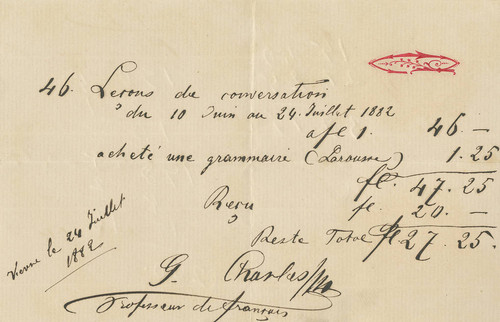 46. Leçons de conversation
du 10 Juin au 24 Juillet 1882
a fl 1. 46. —
acheté une grammaire (Larousse) 1.25
fl. 47.25
Reçu fl. 20. —
Reste Total fl. 27.25.
Vienne le 24 Juillet
1882
G. Charles
Professeur de français